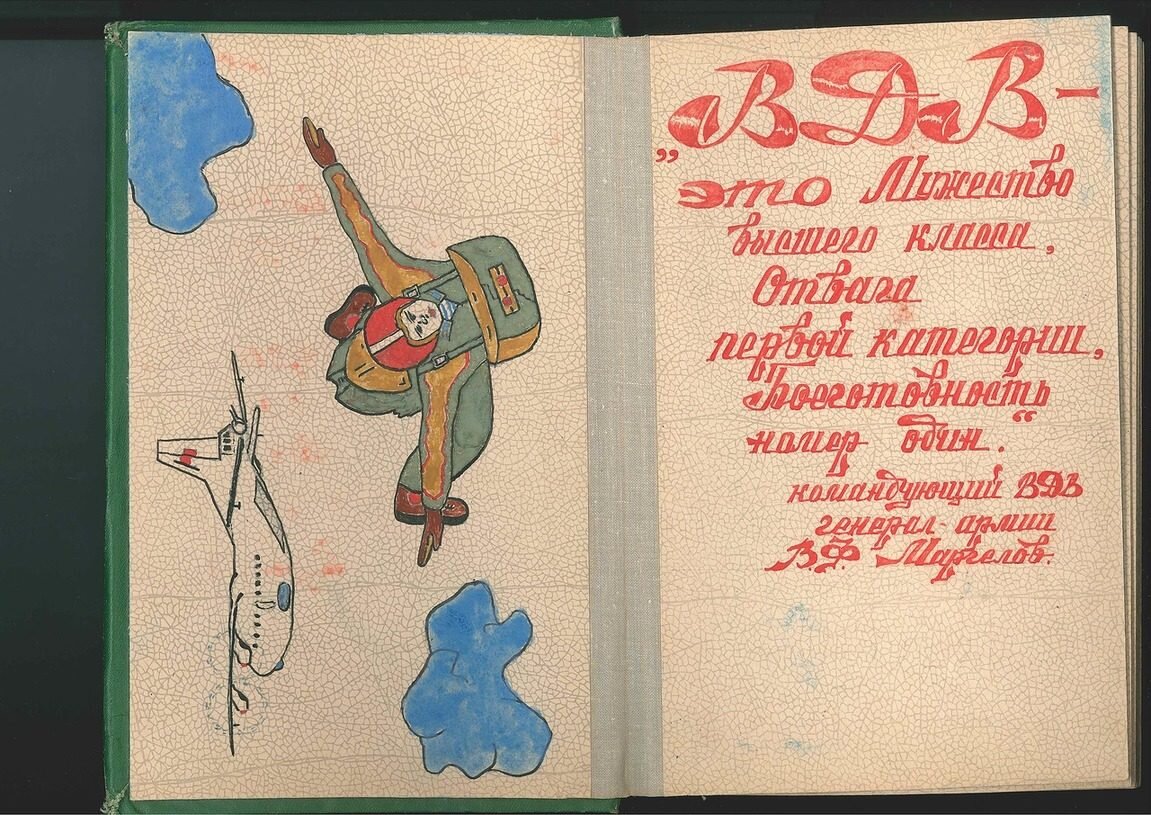 „ВДВ –
это Мужество
высшего класса,
Отвага
первой категории,
Боеготовность
номер один.“
командующий ВДВ
генерал-армии
В.Ф. Маргелов.